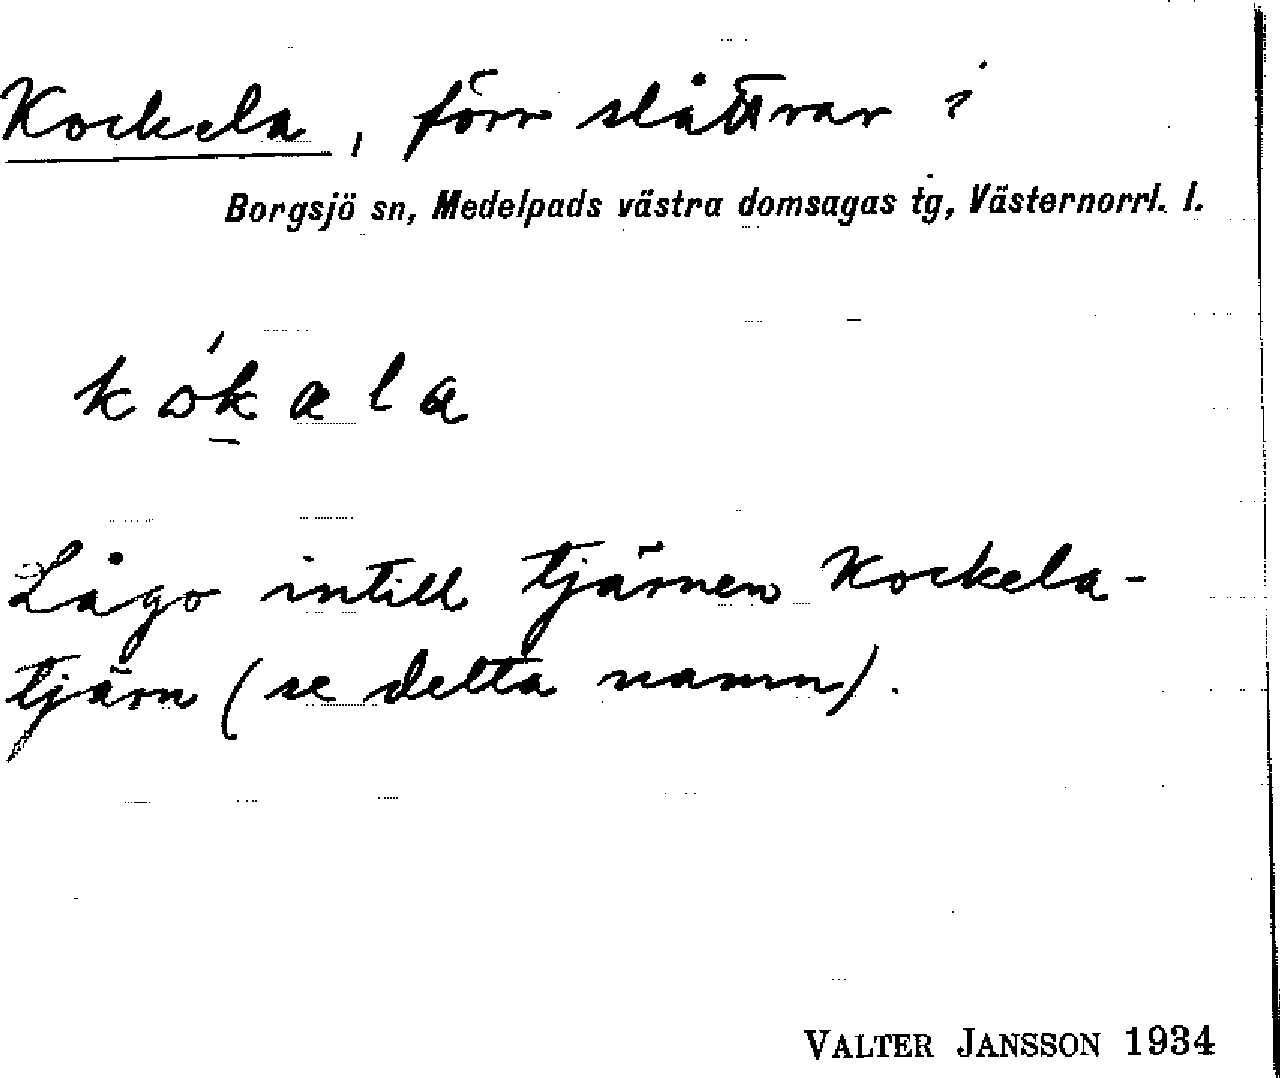 Kockela, förr slåttrar i
Borgsjö sn, Medelpads västra domsagas tg, Västernorrl. l.
Lågo intill tjärnen Kockela-
tjärn (se detta namn).
VALTER JANSSON 1934